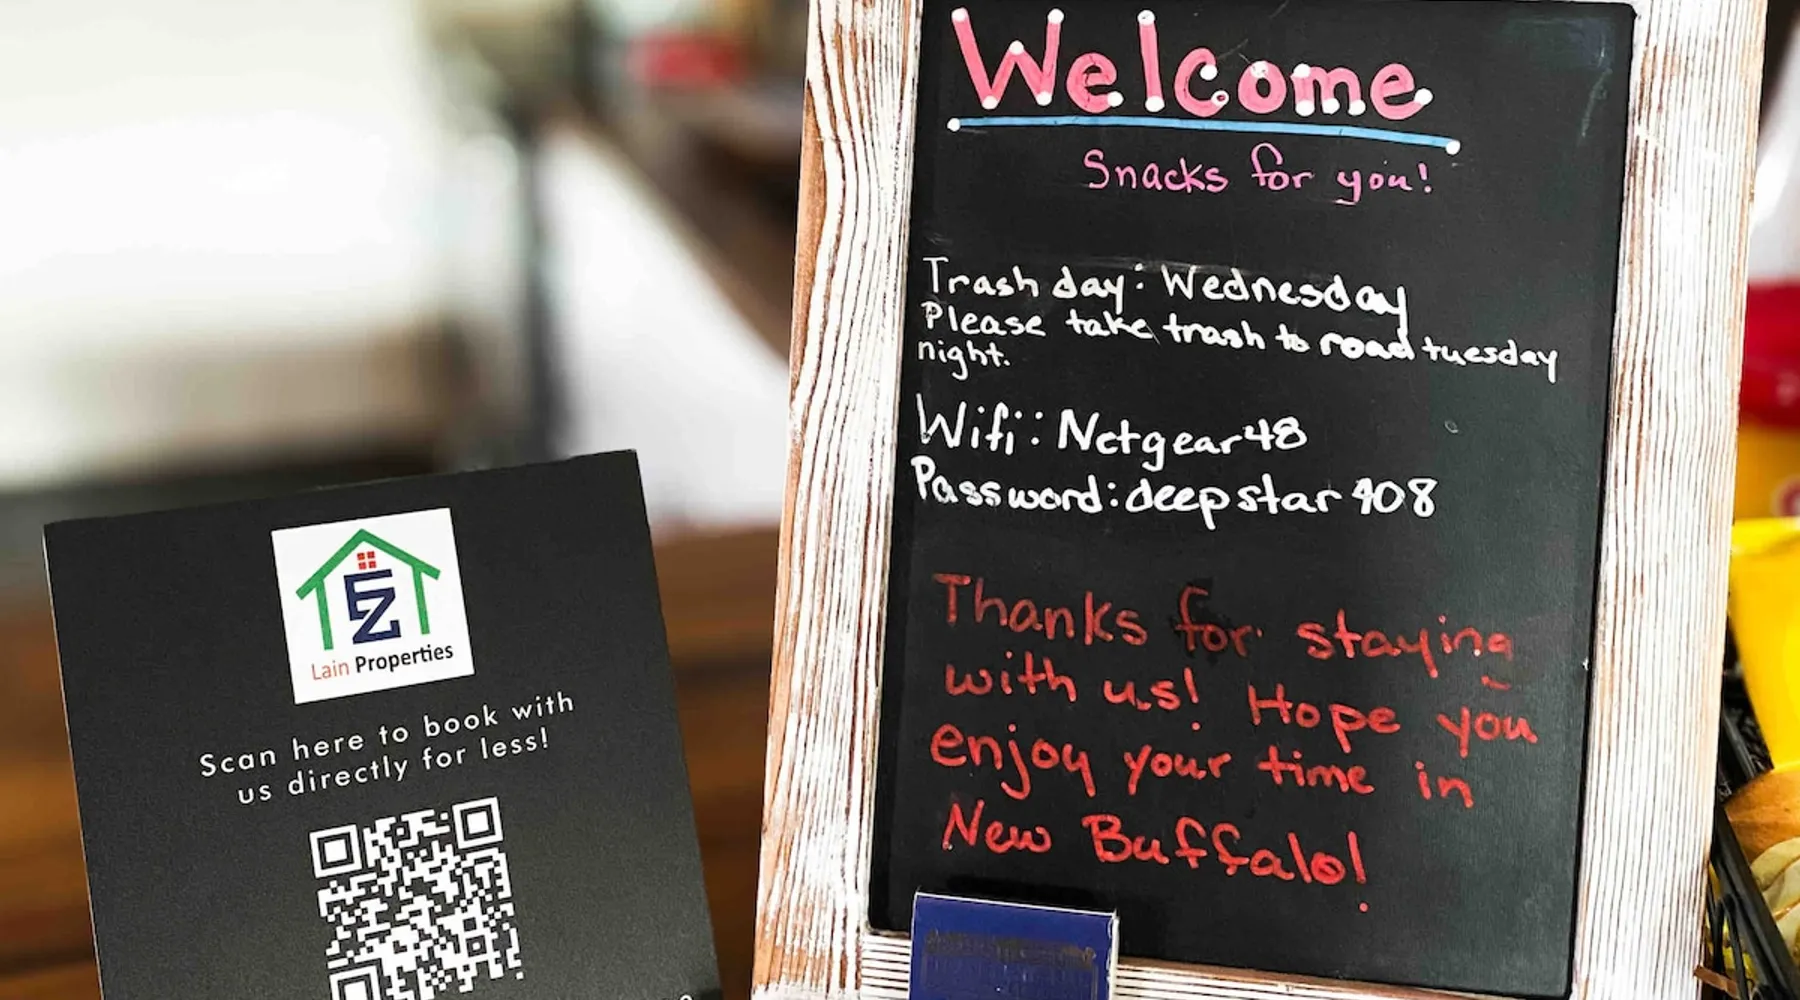 Welcome
Snacks for you!
Trash day: Wednesday
Please take trash to road tuesday
night.
Wifi: Netgear48
Password: deepstar408
Thanks for staying
with us! Hope you
enjoy your time in
New Buffalo!
EZ
Lain Properties
Scan here to book with
us directly for less!